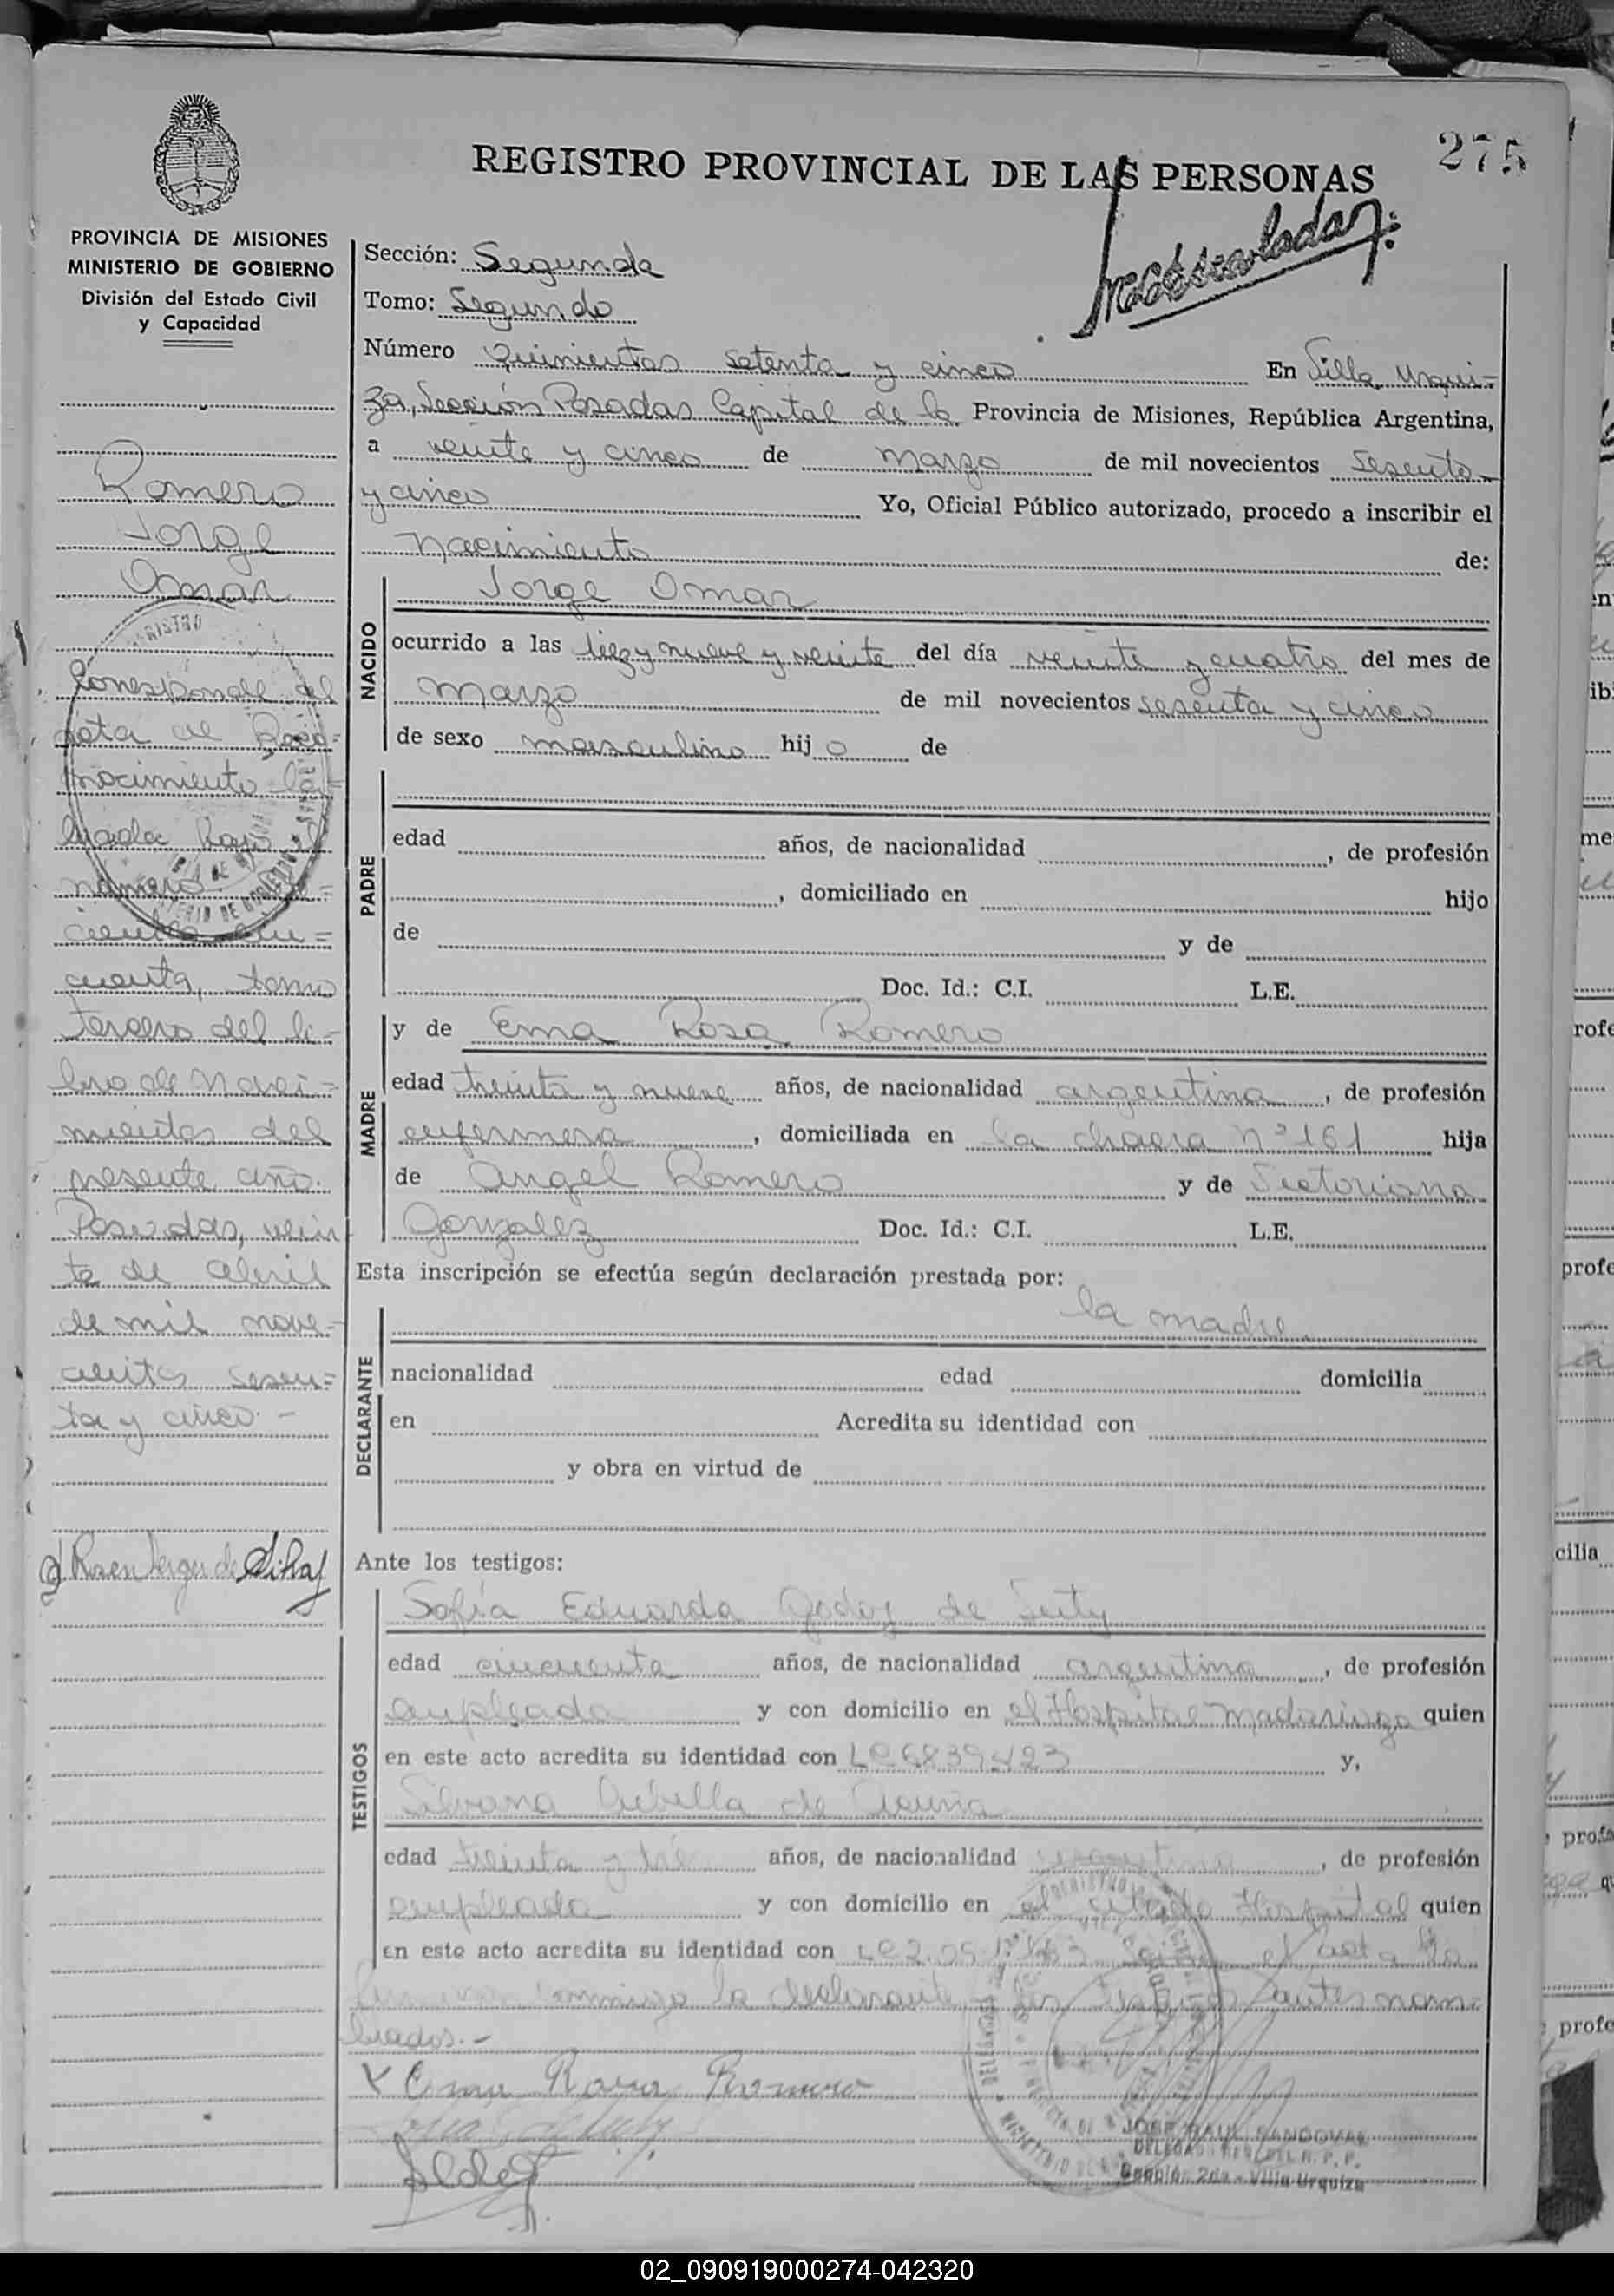 275
REGISTRO PROVINCIAL DE LAS PERSONAS
PROVINCIA DE MISIONES
MINISTERIO DE GOBIERNO
División del Estado Civil
y Capacidad
Romero
Jorge
Omar
Corresponde al
acta de Reco=
nocimiento la=
brada bajo el
número
cuenta, tomo
tercero del li=
bro de Naci=
mientos del
presente año.
Posadas, vein
te de abril
de mil nove=
cientos sesen=
ta y cinco.-
Sección: Segunda
Tomo: Segundo
Número Quinientos setenta y cinco En Villa Urqui-
za, Sección Posadas Capital de la Provincia de Misiones, República Argentina,
a veinte y cinco de marzo de mil novecientos sesenta
y cinco Yo, Oficial Público autorizado, procedo a inscribir el
nacimiento de:
NACIDO
Jorge Omar
ocurrido a las diez y nueve y veinte del día veinte y cuatro del mes de
marzo de mil novecientos sesenta y cinco
de sexo masculino hijo de
PADRE
edad años, de nacionalidad , de profesión
, domiciliado en hijo
de y de
Doc. Id.: C.I. L.E.
MADRE
y de Ema Rosa Romero
edad treinta y nueve años, de nacionalidad argentina, de profesión
enfermera, domiciliada en la chacra Nº 161 hija
de Angel Romero y de Victoriana
Gonzalez Doc. Id.: C.I. L.E.
Esta inscripción se efectúa según declaración prestada por:
DECLARANTE
la madre.
nacionalidad edad domicilia
en Acredita su identidad con
y obra en virtud de
Ante los testigos:
TESTIGOS
Sofía Eduarda Godoy de
edad cincuenta años, de nacionalidad argentina, de profesión
empleada y con domicilio en el Hospital Madariaga quien
en este acto acredita su identidad con LC 6839423 y,
Silvana de Acuña
edad treinta y tré años, de nacionalidad argentina, de profesión
empleada y con domicilio en el citado Hospital quien
en este acto acredita su identidad con LC el acta la
conmigo la declarante testigos antes nom=
brados.-
Ema Rosa Romero
JOSE RAUL SANDOVAL
Villa Urquiza
02_090919000274-042320